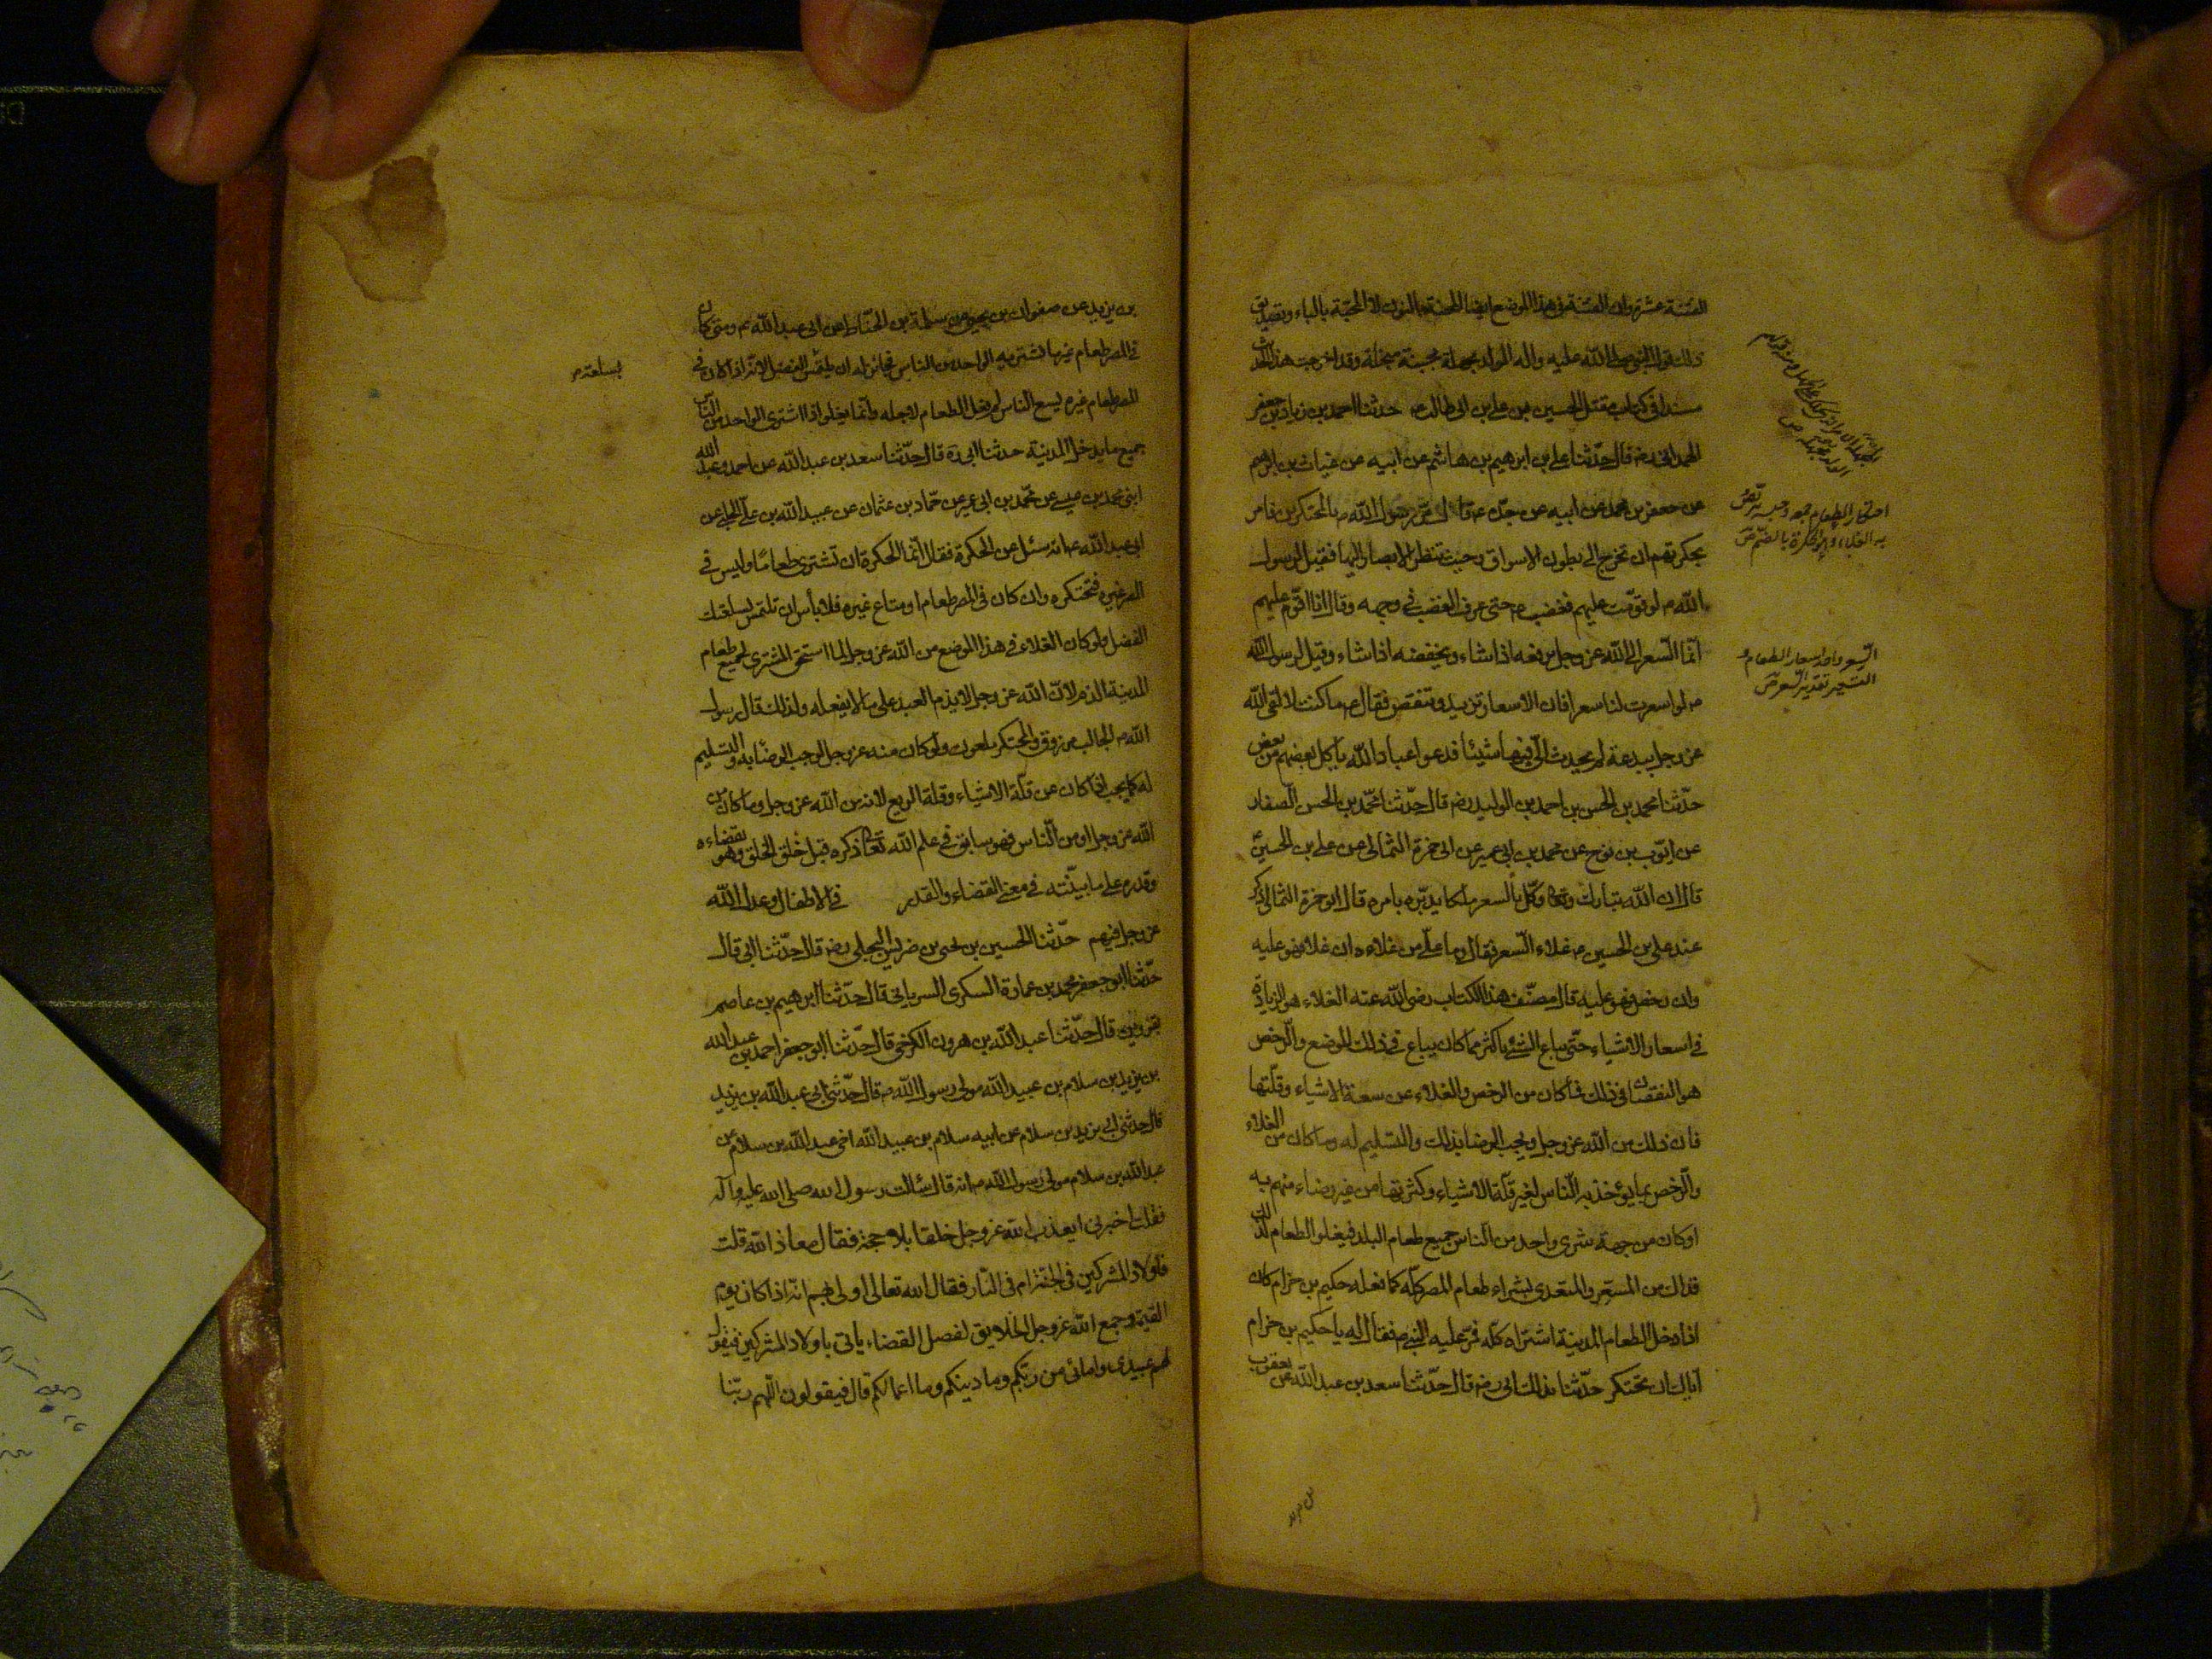 الفتنة عشرة وان الفتنة في هذا الموضع ايضا المحنة بالنون لا المحبّة بالباء وتصديق
ذلك قول النبي صلى الله عليه واله الولد مجهلة مجبنة مبخلة وقد اخرجت هذا الحديث
مسندا في كتاب مقتل الحسين بن علي بن ابي طالب ع حدثنا احمد بن زياد بن جعفر
الهمداني رضه قال حدّثنا علي بن ابرهيم بن هاشم عن ابيه عن غياث بن ابرهيم
عن جعفر بن محمد عن ابيه عن جدّه ع قال مرّ رسول الله ص بالمحتكرين فامر
بحكرتهم ان تخرج الى بطون الاسواق وحيث تنظر الابصار اليها فقيل لرسول
الله ص لو قوّمت عليهم فغضب ص حتى عرف الغضب في وجهه وقال انا اقوّم عليهم
انّما السّعر الى الله عز وجل يرفعه اذا شاء ويخفضه اذا شاء وقيل لرسول الله
ص لو اسعرت لنا سعرا فان الاسعار تزيد وتنقص فقال ص ما كنت لالقى الله
عز وجل ببدعة لم يحدث الّي فيها شيئا فدعوا عباد الله ياكل بعضهم من بعض
حدّثنا محمد بن الحسن بن احمد بن الوليد رضه قال حدّثنا محمّد بن الحسن الصّفار
عن ايّوب بن نوح عن محمد بن ابي عمير عن ابي حمزة الثمالى عن علي بن الحسين ع
قال ان الله تبارك وتعا وكّل بالسعر ملكا يدبّره بامره قال ابو حمزة الثمالى ذكر
عند علي بن الحسين ع غلاء السّعر فقال وما علّي من غلاءه ان غلا فهو عليه
وان رخص فهو عليه قال مصنّف هذا الكتاب رضى الله عنه الغلاء هو الزيادة
في اسعار الاشياء حتّى يباع الشئ باكثر مما كان يباع في ذلك الموضع والرّخص
هو النقصان في ذلك فما كان من الرخص والغلاء عن سعة الاشياء وقلّتها
فان ذلك من الله عز وجل ويجب الرضا بذلك والتسليم له وما كان من الغلاء
والرّخص بما يؤخذ به النّاس لغير قلّة الاشياء وكثرتها من غير رضاء منهم به
او كان من جهة شرى واحد من النّاس جميع طعام البلد فيغلو الطعام لذلك
فذلك من المسعّر والمتعدى بشراء طعام المصر كلّه كما فعله حكيم بن حزام كان
اذا دخل الطعام المدينة اشتراه كلّه فمرّ عليه النبي ص فقال له يا حكيم بن حزام
ايّاك ان تحتكر حدّثنا بذلك ابي رضه قال حدّثنا سعد بن عبد الله عن يعقوب
احتكار الطعام جمعه وحبسه يتربّص
به الغلاء وهو الحكرة بالضمّ ص
السّعر واحد اسعار الطعام و
التسعير تقدير السّعر ص
بن يزيد
بن يزيد عن صفوان بن يحيى عن سلمة بن الحنّاط عن ابي عبد الله ع ومتى كان
في المصر طعام غير ما يشتريه الواحد من الناس فجائز له ان يلتمس الفضل لانّه اذا كان في
المصر طعام غيره يسع الناس لم يغل الطعام لاجله وانّما يغلو اذا اشترى الواحد من النّاس
جميع ما يدخل المدينة حدثنا ابي ره قال حدّثنا سعد بن عبد الله عن احمد وعبد الله
ابنى محمد بن عيسى عن محمّد بن ابي عمير عن حمّاد بن عثمان عن عبيد الله بن علّي الحلبي عن
ابي عبد الله ع انه سئل عن الحكرة فقال انّما الحكرة ان تشترى طعاما وليس في
المصر غيره فتحتكره وان كان في المصر طعام او متاع غيره فلا باس ان تلتمس لسلعتك
الفضل ولو كان الغلاء في هذا الموضع من الله عز وجل لما استحق المشترى لجميع طعام
المدينة الذم لانّ الله عز وجل لا يذم العبد على ما لا يفعله ولذلك قال رسول
الله ص الجالب مرزوق والمحتكر ملعون ولو كان منه عز وجل لوجب الرضا به والتسليم
له كما يجب اذا كان عن قلّة الاشياء وقلة الريع لانه من الله عز وجل وما كان من
الله عز وجل او من النّاس فهو سابق في علم الله تعا ذكره قبل خلق الخلق وهو بقضاءه
وقدره على ما بيّنته في معنى القضاء والقدر في الاطفال وعدل الله
عز وجل فيهم حدّثنا الحسين بن يحيى بن ضريس البجلى رضه قال حدّثنا ابي قال
حدّثنا ابو جعفر محمد بن عمارة السكرى السريانى قال حدّثنا ابرهيم بن عاصم
بقزوين قال حدّثنا عبد الله بن هرون الكرخى قال حدّثنا ابو جعفر احمد بن عبد الله
بن يزيد بن سلام بن عبيد الله مولى رسول الله ص قال حدّثني ابي عبد الله بن يزيد
قال حدثنى ابي يزيد بن سلام عن ابيه سلام بن عبيد الله اخى عبد الله بن سلام عن
عبد الله بن سلام مولى رسول الله ص انه قال سئالت رسول الله صلى الله عليه وآله
فقلت اخبرنى ايعذب الله عز وجل خلقا بلا حجة فقال معاذ الله قلت
فاولاد المشركين في الجنّة ام في النّار فقال الله تعالى اولى بهم انّه اذا كان يوم
القيمة وجمع الله عز وجل الخلايق لفصل القضاء ياتى باولاد المشركين فيقول
لهم عبيدى وامائى من ربّكم وما دينكم وما اعمالكم قال فيقولون اللّهم ربّنا
لسلعته